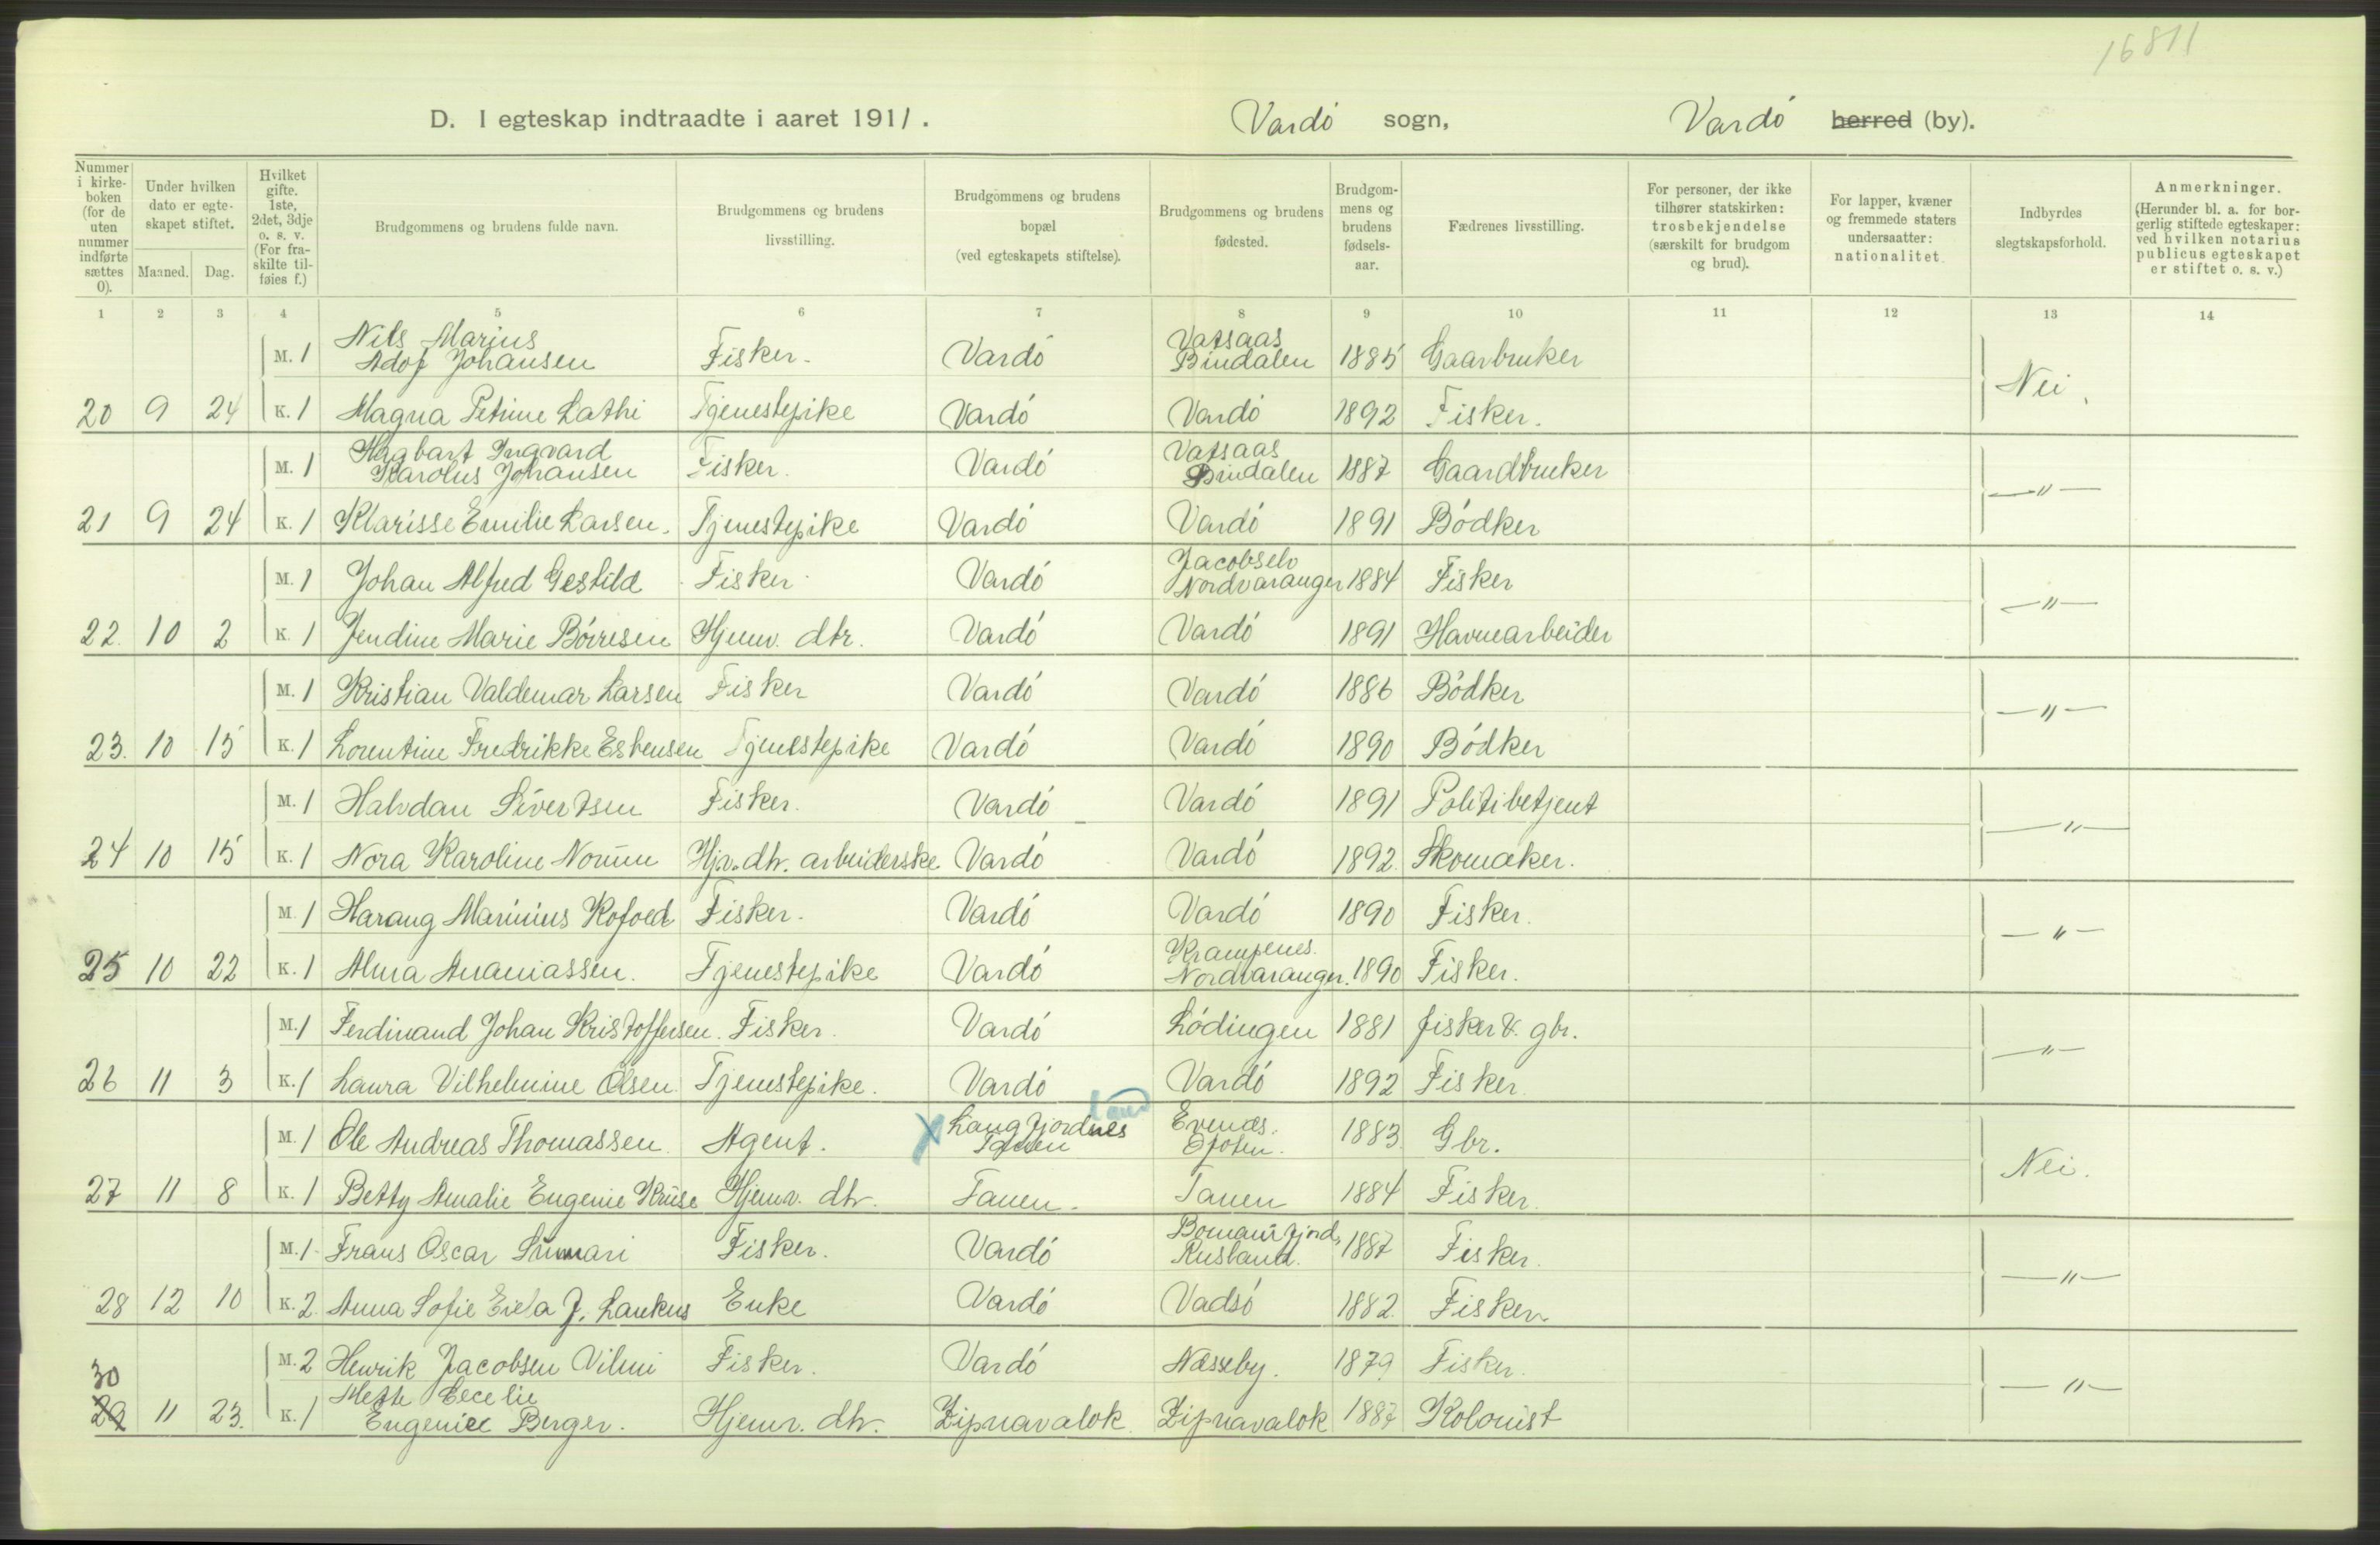 16811
D. I egteskap indtraadte i aaret 1911. Vardó sogn, Vardó herred (by).
Nummer i kirke-boken (for de uten nummer indførte sættes 0).
Under hvilken dato er egte-skapet stiftet.
Maaned. Dag.
Hvilket gifte. 1ste, 2det, 3dje o. s. v. (For fra-skilte til-føies f.)
Brudgommens og brudens fulde navn.
Brudgommens og brudens livsstilling.
Brudgommens og brudens bopæl (ved egteskapets stiftelse).
Brudgommens og brudens fødested.
Brudgom-mens og brudens fødsels-aar.
Fædrenes livsstilling.
For personer, der ikke tilhører statskirken: trosbekjendelse (særskilt for brudgom og brud).
For lapper, kvæner og fremmede staters undersaatter: nationalitet.
Indbyrdes slegtskapsforhold.
Anmerkninger. (Herunder bl. a. for bor-gerlig stiftede egteskaper: ved hvilken notarius publicus egteskapet er stiftet o. s. v.)
1 2 3 4 5 6 7 8 9 10 11 12 13 14
M. 1 Nils Marius Adof Johansen Fisker. Vardó Vatsaas Bindalen 1885 Gaarbruker Nei.
20 9 24 K. 1 Magna Petrine Lathi Tjenestepike Vardó Vardó 1892 Fisker.
M. 1 Hagbart Ingvard Karolus Johansen Fisker. Vardó Vatsaas Bindalen 1887 Gaardbruker — " —
21 9 24 K. 1 Klarisse Emilie Larsen. Tjenestepike Vardó Vardó 1891 Bódker
M. 1 Johan Alfred Gestild Fisker Vardó Jacobselv Nordvaranger 1884 Fisker — " —
22. 10 2 K. 1 Jendine Marie Bórresen Hjemv. dtr. Vardó Vardó 1891 Havnearbeider
M. 1 Kristian Valdemar Larsen Fisker Vardó Vardó 1886 Bódker — " —
23. 10 15 K. 1 Lorentine Fredrikke Esbensen Tjenestepike Vardó Vardó 1890 Bódker
M. 1 Halvdan Sivertsen Fisker. Vardó Vardó 1891 Politibetjent — " —
24 10 15 K. 1 Nora Karoline Norum Hjv. dtr. arbeiderske Vardó Vardó 1892. Skomaker.
M. 1 Harang Marinius Kofoed Fisker. Vardó Vardó 1890 Fisker. — " —
25 10 22 K. 1 Alma Ananiassen. Tjenestepike Vardó Krampenes. Nordvaranger. 1890 Fisker.
M. 1 Ferdinand Johan Kristoffersen. Fisker. Vardó Lódingen 1881 fisker & gbr. — " —
26 11 3 K. 1 Laura Vilhelmine Olsen. Tjenestepike. Vardó Vardó 1892 Fisker.
M. 1 Ole Andreas Thomassen. Agent. X Langfjordnes Tanen Evenæs. Ofoten. 1883. Gbr. Nei.
27 11 8 K. 1 Betty Amalie Eugenie Kruse Hjemv. dtr. Tanen. Tanen 1884 Fisker.
M. 1. Frans Oscar Summari Fisker. Vardó Bomanifjord, Rusland. 1887 Fisker. — " —
28 12 10 K. 2. Anna Sofie J. Laukus Enke Vardó Vadsó 1882. Fisker
M. 2 Henrik Jacobsen Vilmi Fisker. Vardó Næsseby. 1879 Fisker. — " —
30 29 11 23. K. 1 Mette Cecelie Eugenie Berger. Hjemv. dtr. Zipnavalok. Zipnavalok 1887 Kolonist